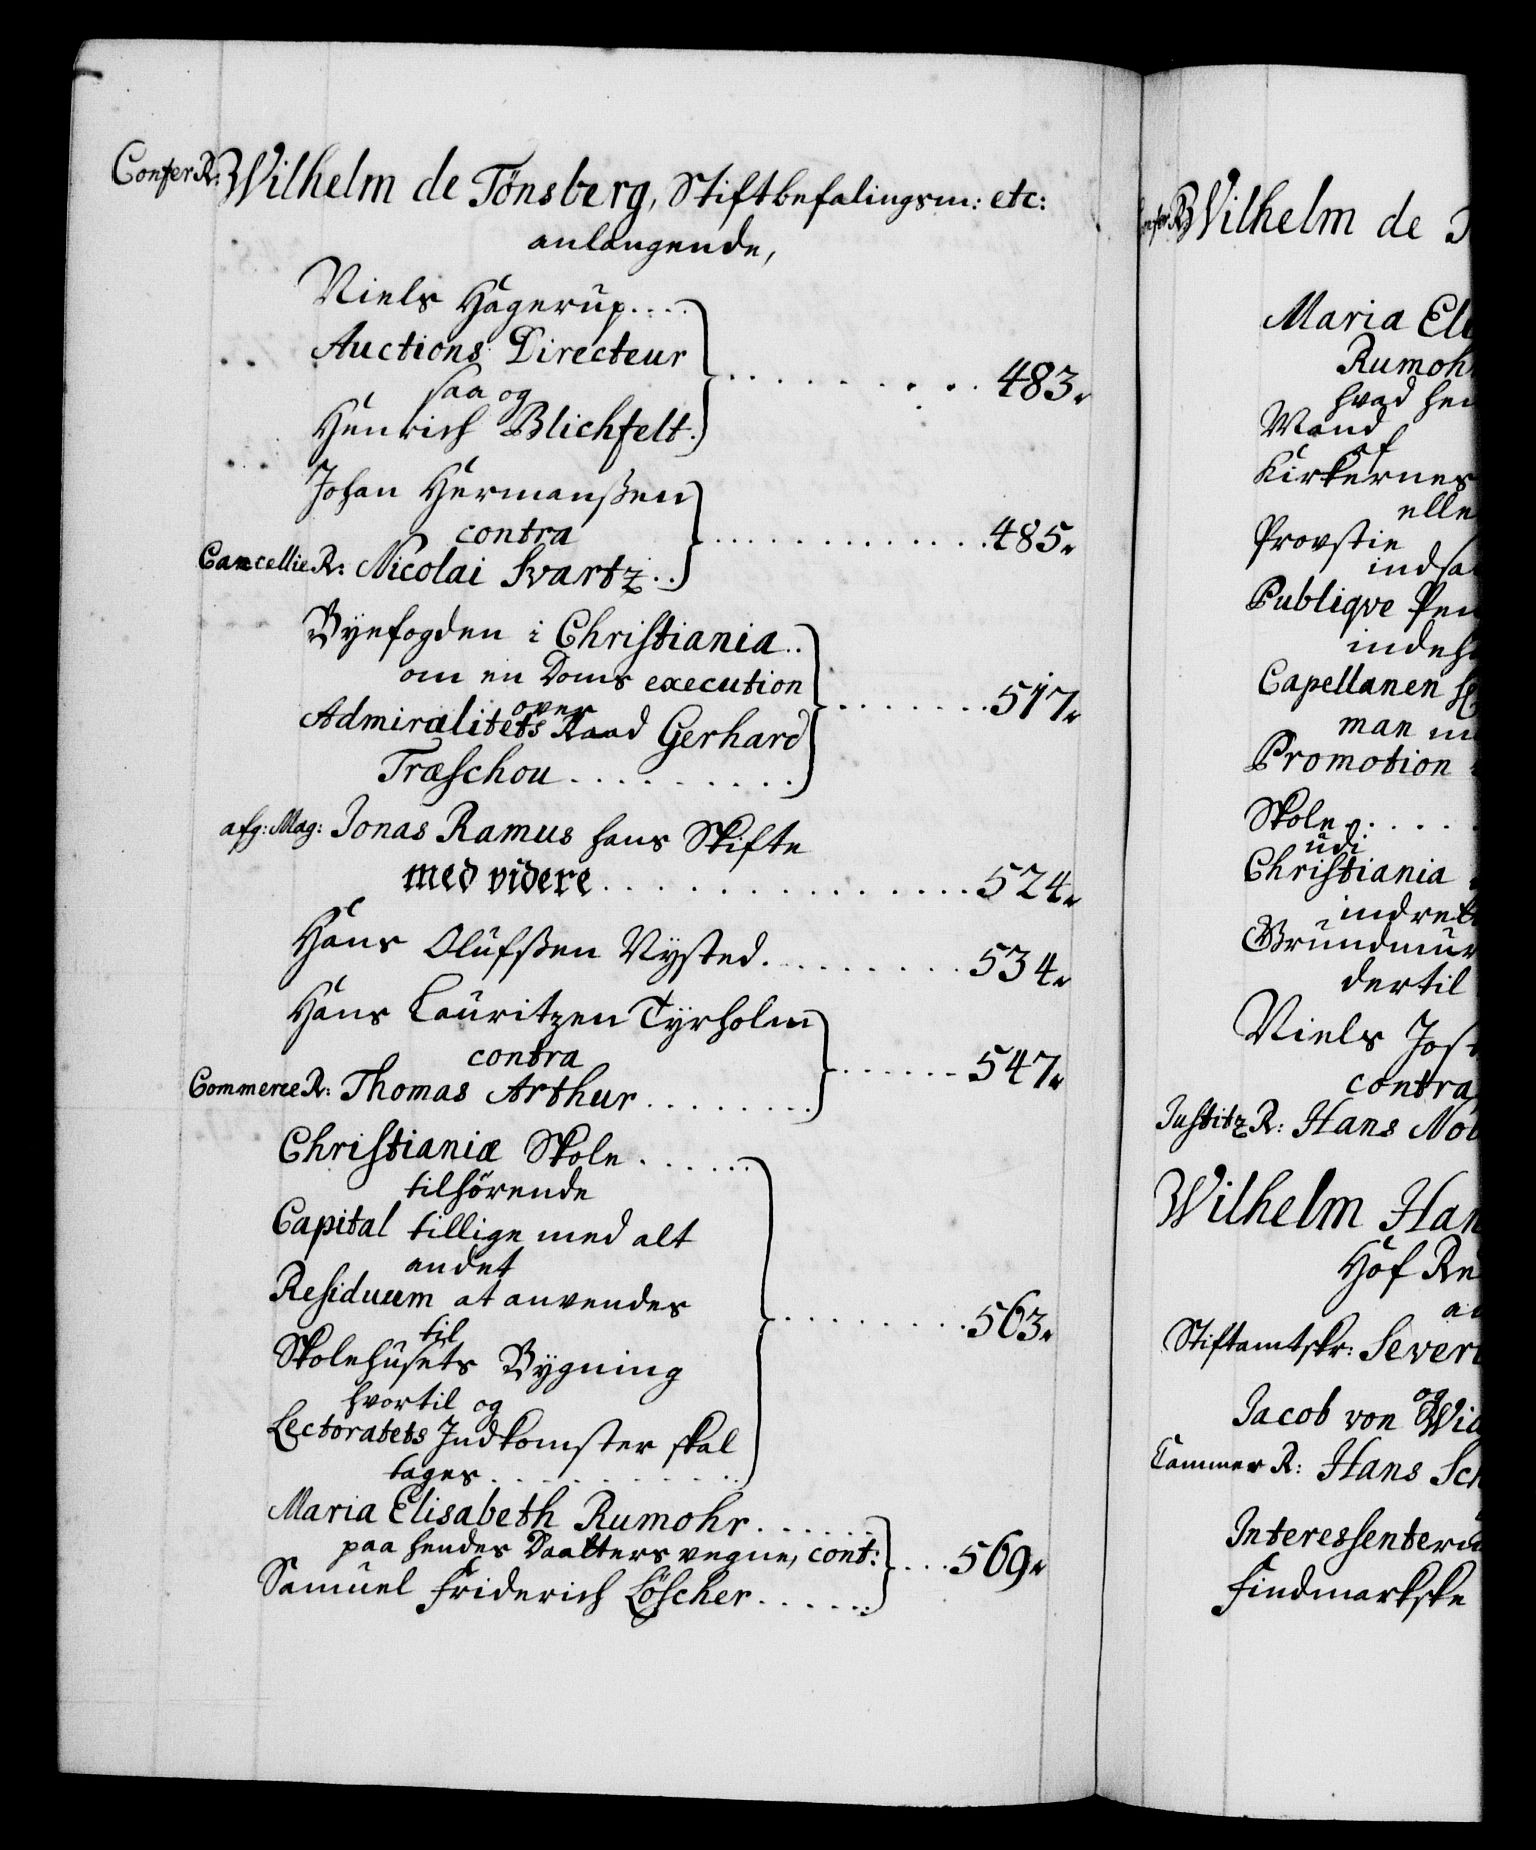 ConferR: Wilhelm de Tønsberg, Stiftbefalingsm: etc:
anlangende,
Niels Hagerup....
Auctions Directeur
saa og
Henrich Blichfelt.
483.
Johan Hermanßen
contra
CancellieR: Nicolai Svartz..
485.
Byefogden i Christiania..
om en Doms execution
over
Admiralitets Raad Gerhard
Træschou
517.
afg: Mag: Jonas Ramus hans Skifte
med videre
524.
Hans Olufßen Nysted.
534.
Hans Lauritzen Tyrholm
contra
CommerceR: Thomas Arthur
547.
Christianiæ Skole
tilhørende
Capital tillige med alt
andet
Residuum at anvendes
til
Skolehusets Bygning
hvortil og
Lectoratets Indkomster skal
tages
563.
Maria Elisabeth Rumohr
paa hendes Daatters vegne, cont:
Samuel Friderich Löscher
569.
Wilhelm de
Maria
Rumoh
hvad
Mand
af
Kirkernes
elle
Provstie
Publiqve
Capellanen
man
Promotion
Skole
udi
Christiania
Grundmur
dertil
Niels
contra
JustitzR: Hans
Wilhelm
Hof
Stiftamtskr:
og
Jacob von
Cammer R: Hans
Interessenter
Findmarkske